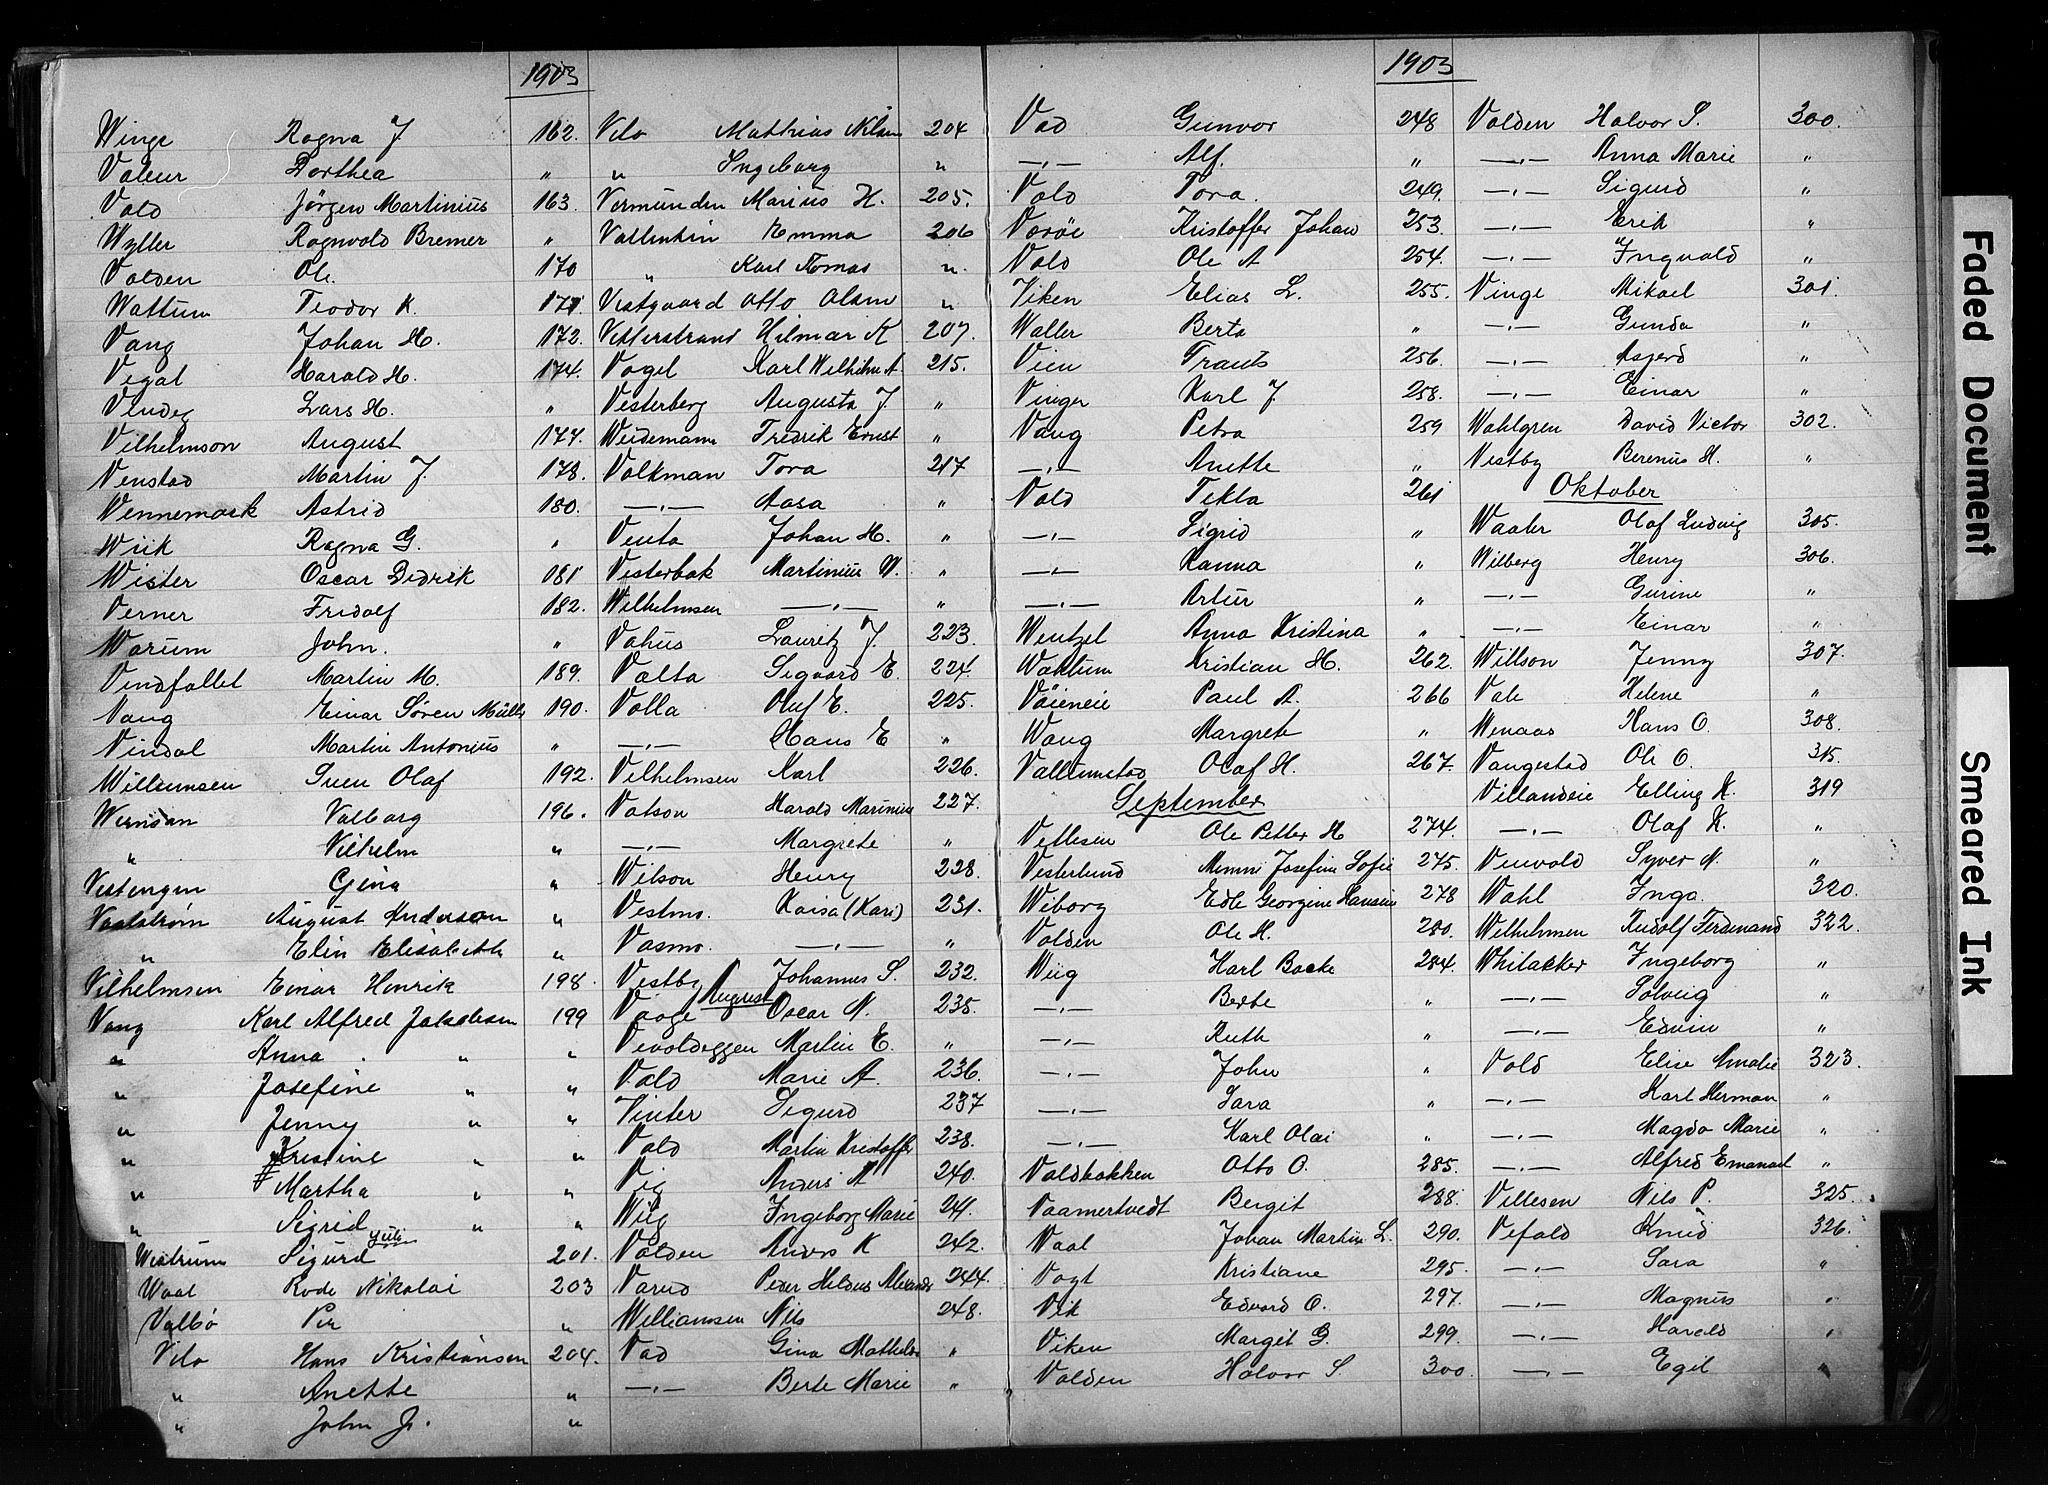 1903
Winge Ragna J 162.
Valeur Dorthea "
Vold Jörgen Martinius 163.
Wyller Ragnvald Bremer "
Volden Ole 170
Wattum Teodor K. 171
Vang Johan H. 172.
Vegal Harald H. 174.
Vendeg Lars H. "
Vilhelmson August 177.
Venstad Martin J. 178.
Wennemark Astrid 180.
Wiik Ragna G. "
Wister Oscar Didrik 181
Verner Fridolf 182.
Warum John. "
Vindfallet Martin M. 189.
Vang Einar Sören Müller 190.
Vindal Martin Antonius "
Willumsen Sven Olaf 192.
Wernsan Valborg 196.
" Vilhelm "
Vestengen Gina "
Vaalström August Anderson "
" Elin Elisabeth "
Vilhelmsen Einar Henrik 198.
Vang Karl Alfred Jakobsen 199
" Anna " "
" Josefine " "
" Jenny " "
" Kristine " "
" Martha " "
" Sigrid " "
Juli
Westrum Sigurd 201.
Waal Rode Nikolai 203
Valbö Per "
Velo Hans Kristiansen 204.
" Anette "
" John J. "
Velo Mathias Nilsen 204
" Ingeborg "
Vermunden Marius H. 205.
Vallentin Emma 206
" Karl Tomas "
Vestgaard Otto Olsen "
Vetterstrand Hilmar K 207.
Vogel Karl Wilhelm A. 215.
Vesterberg Augusta J. "
Weidemann Fredrik Ernst "
Volkman Tora 217
—"— Aasa "
Venta Johan H. "
Vesterbak Martinius W. "
Wilhelmsen —"— "
Vahus Lauritz J. 223.
Valta Sigvard E. 224.
Volla Oluf E. 225.
—"— Hans E "
Vilhelmsen Karl 226.
Vatson Harald Marinius 227.
—"— Margrete "
Wilson Henry 228.
Vestmo. Kaisa (Kari) 231.
Vasmo. —"— "
Vestby Johannes S. 232.
August
Vaage Oscar N. 235.
Vevoldeggen Martin E. "
Vold Marie A. 236.
Vinter Sigurd 237
Vold Martin Kristoffer 238.
Vig Anders A 240.
Wiig Ingeborg Marie 241.
Volden Anders K 242.
Varud Peder Hildeus Alexander 244.
Williamsen Nils 248.
Vad Gina Mathilde "
—"— Berte Marie "
1903
Vad Gunvor 248
—"— Alf. "
Vold Tora. 249.
Veröe Kristoffer Johan 253.
Vold Ole A 254.
Viken Elias L. 255.
Waller Berta "
Vien Frants 256.
Vinger Karl J 258.
Vang Petra 259
—"— Anette "
Vold Tekla 261
—"— Sigrid "
—"— Hanna "
—"— Artur "
Wentzel Anna Kristina "
Wattum Kristian H. 262.
Vöieneie Paul A. 266
Wang Margrete "
Vallumstad Olaf H. 267.
September
Vetlesen Ole Petter H 274.
Vesterlund Memmi Josefine Sofie 275.
Wiborg Edle Georgine Hansine 278
Volden Ole H. 280.
Wiig Karl Backe 284.
—"— Berte "
—"— Ruth "
—"— John "
—"— Sara "
—"— Karl Olai "
Voldbakken Otto O. 285.
Vaamertvedt Bergit 288.
Waal Johan Martin L. 290.
Vogt Kristiane 295.
Vik Edvard O. 297.
Viken Margit G. 299.
Volden Halvor S. 300.
Volden Halvor S. 300.
—"— Anna Marie "
—"— Sigurd "
—"— Erik "
—"— Ingvald "
Vinge Mikael 301.
—"— Gunda "
—"— Asjerd "
—"— Einar "
Wahlgren David Victor 302.
Vestby Berenus H. "
Oktober
Waaler Olaf Ludvig 305.
Wilberg Henry 306.
—"— Gurine "
—"— Einar "
Willson Jenny 307.
Vale Helene "
Wenaas Hans O. 308.
Vangestad Ole O. 315.
Villandeie Elling K. 319
—"— Olaf K. "
Venvold Syver N. "
Wahl Inga. 320.
Wilhelmsen Rudolf Ferdinand 322.
Whitacker Ingeborg "
—"— Solveig "
—"— Edvin "
Vold Elise Amalie 323.
—"— Karl Herman "
—"— Magda Marie "
—"— Alfred Emanuel "
Villesen Nils P. 325.
Vefald Knud 326.
—"— Sara "
—"— Magnus "
—"— Harald "
—"— Egil "
Faded Document
Smeared Ink